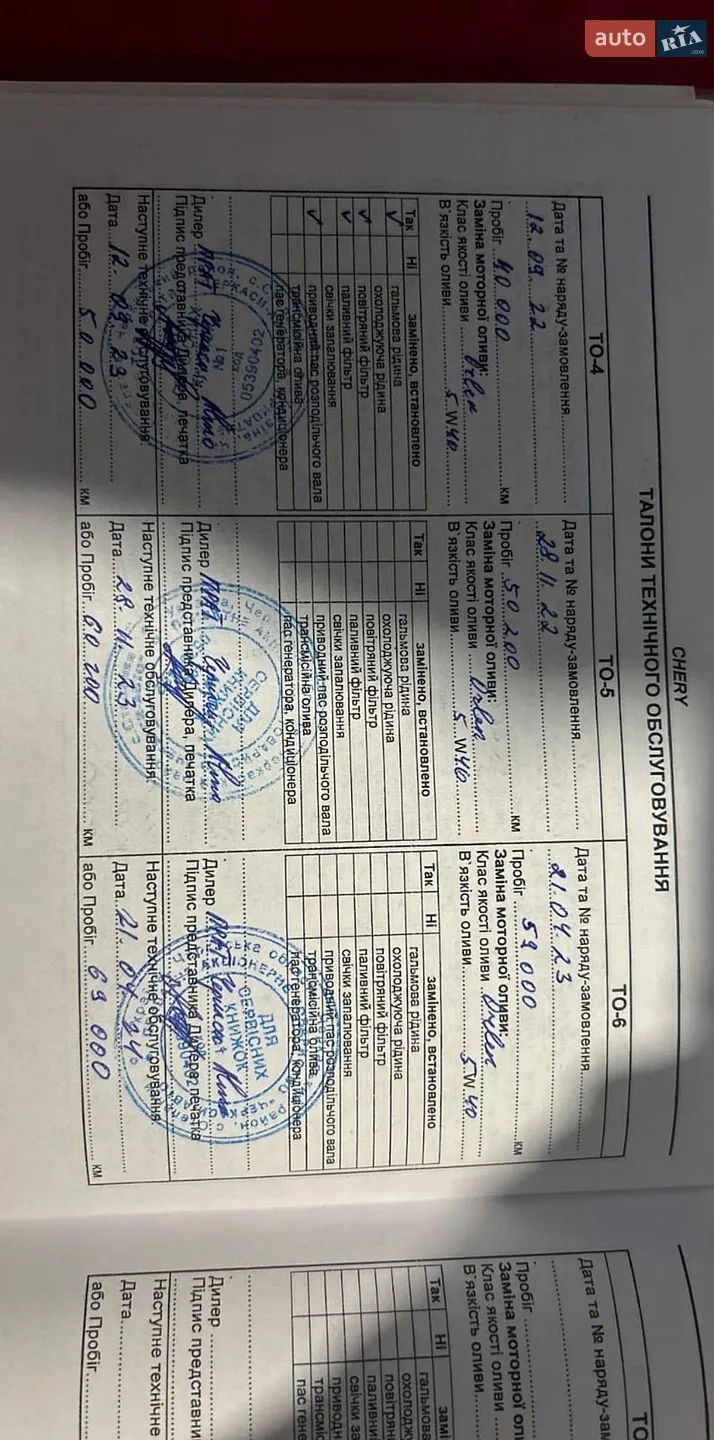 auto RIA.com
CHERY
ТАЛОНИ ТЕХНІЧНОГО ОБСЛУГОВУВАННЯ
ТО-4
Дата та № наряду-замовлення
12. 09. 22
Пробіг 40 000 км
Заміна моторної оливи:
Клас якості оливи Orlen
В`язкість оливи 5 W 40
Так Ні замінено, встановлено
✓ гальмова рідина
охолоджуюча рідина
✓ повітряний фільтр
✓ паливний фільтр
свічки запалювання
✓ приводний пас розподільчого вала
трансмісійна олива
пас генератора, кондиціонера
Дилер ПРАТ
Підпис представника Дилера, печатка
Наступне технічне обслуговування:
Дата 12. 09 23
або Пробіг 50 000 км
ТО-5
Дата та № наряду-замовлення
28. 11. 22
Пробіг 50 200 км
Заміна моторної оливи:
Клас якості оливи Orlen
В`язкість оливи 5 W 40
Так Ні замінено, встановлено
гальмова рідина
охолоджуюча рідина
повітряний фільтр
паливний фільтр
свічки запалювання
приводний пас розподільчого вала
трансмісійна олива
пас генератора, кондиціонера
Дилер ПРАТ
Підпис представника Дилера, печатка
ДЛЯ СЕРВІСНИХ КНИЖОК
Наступне технічне обслуговування:
Дата 28 11. 23
або Пробіг 60 200 км
ТО-6
Дата та № наряду-замовлення
21. 04. 23
Пробіг 59 000 км
Заміна моторної оливи:
Клас якості оливи Orlen
В`язкість оливи 5 W 40
Так Ні замінено, встановлено
гальмова рідина
охолоджуюча рідина
повітряний фільтр
паливний фільтр
свічки запалювання
приводний пас розподільчого вала
трансмісійна олива
пас генератора, кондиціонера
Дилер ПРАТ
Підпис представника Дилера, печатка
ДЛЯ СЕРВІСНИХ КНИЖОК
Наступне технічне обслуговування:
Дата 21. 04 24
або Пробіг 69 000 км
ТО
Дата та № наряду-зам
Пробіг
Заміна моторної ол
Клас якості оливи
В`язкість оливи
Так Ні замі
гальмова
охолодж
повітрян
паливни
свічки за
приводн
трансміс
пас гене
Дилер
Підпис представни
Наступне технічне
Дата
або Пробіг